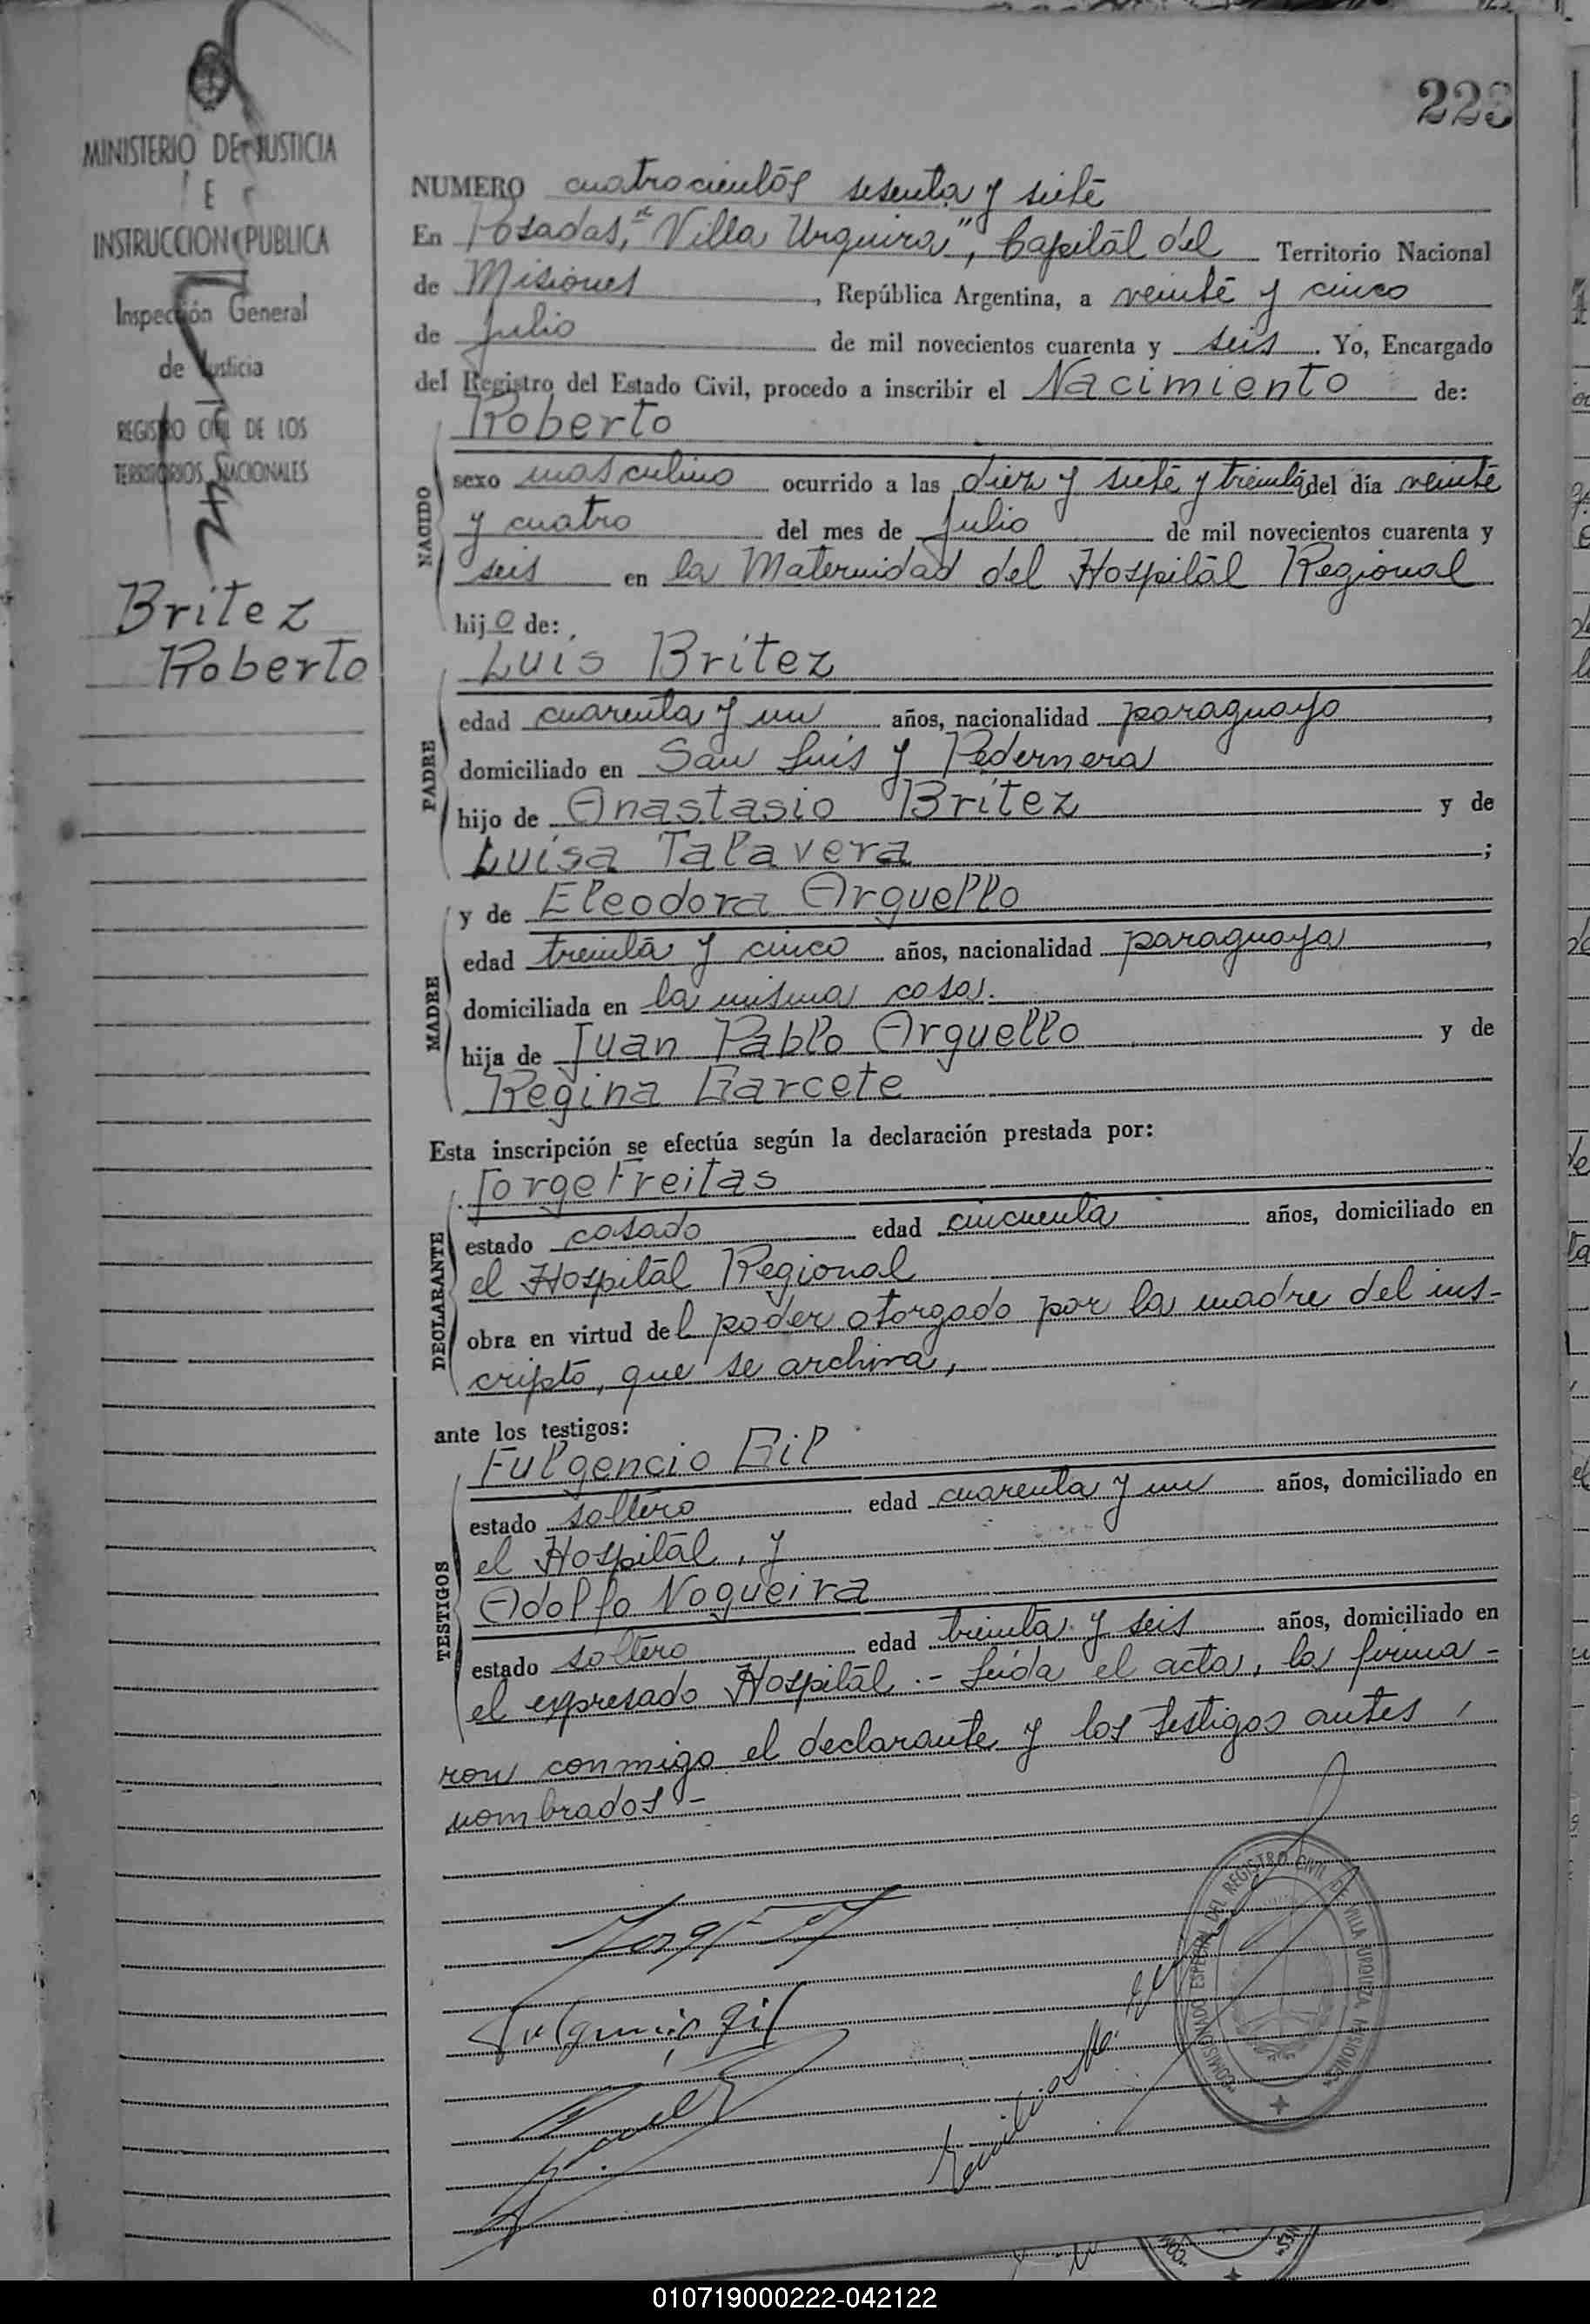 223
MINISTERIO DE JUSTICIA
E
INSTRUCCION PUBLICA
Inspección General
de Justicia
REGISTRO CIVIL DE LOS
TERRITORIOS NACIONALES
Britez
Roberto
NUMERO cuatrocientos sesenta y siete
En Posadas, "Villa Urquiza", Capital del Territorio Nacional
de Misiones, República Argentina, a veinte y cinco
de Julio de mil novecientos cuarenta y seis. Yo, Encargado
del Registro del Estado Civil, procedo a inscribir el Nacimiento de:
Roberto
NACIDO
sexo masculino ocurrido a las diez y siete y treinta del día veinte
y cuatro del mes de Julio de mil novecientos cuarenta y
seis en la Maternidad del Hospital Regional
hijo de:
PADRE
Luis Britez
edad cuarenta y un años, nacionalidad paraguayo,
domiciliado en San Luis y Pedernera
hijo de Anastasio Britez y de
Luisa Talavera;
MADRE
y de Eleodora Arguello
edad treinta y cinco años, nacionalidad paraguaya,
domiciliada en la misma casa.
hija de Juan Pablo Arguello y de
Regina Garcete
Esta inscripción se efectúa según la declaración prestada por:
DECLARANTE
Jorge Freitas
estado casado edad cincuenta años, domiciliado en
el Hospital Regional
obra en virtud del poder otorgado por la madre del ins-
cripto, que se archiva,
ante los testigos:
TESTIGOS
Fulgencio Gil
estado soltero edad cuarenta y un años, domiciliado en
el Hospital, y
Adolfo Nogueira
estado soltero edad treinta y seis años, domiciliado en
el expresado Hospital.- Leída el acta, la firma-
ron conmigo el declarante y los testigos antes
nombrados-
Fulgencio Gil
COMISIONADO ESPECIAL DEL REGISTRO CIVIL DE VILLA URQUIZA MISIONES
010719000222-042122